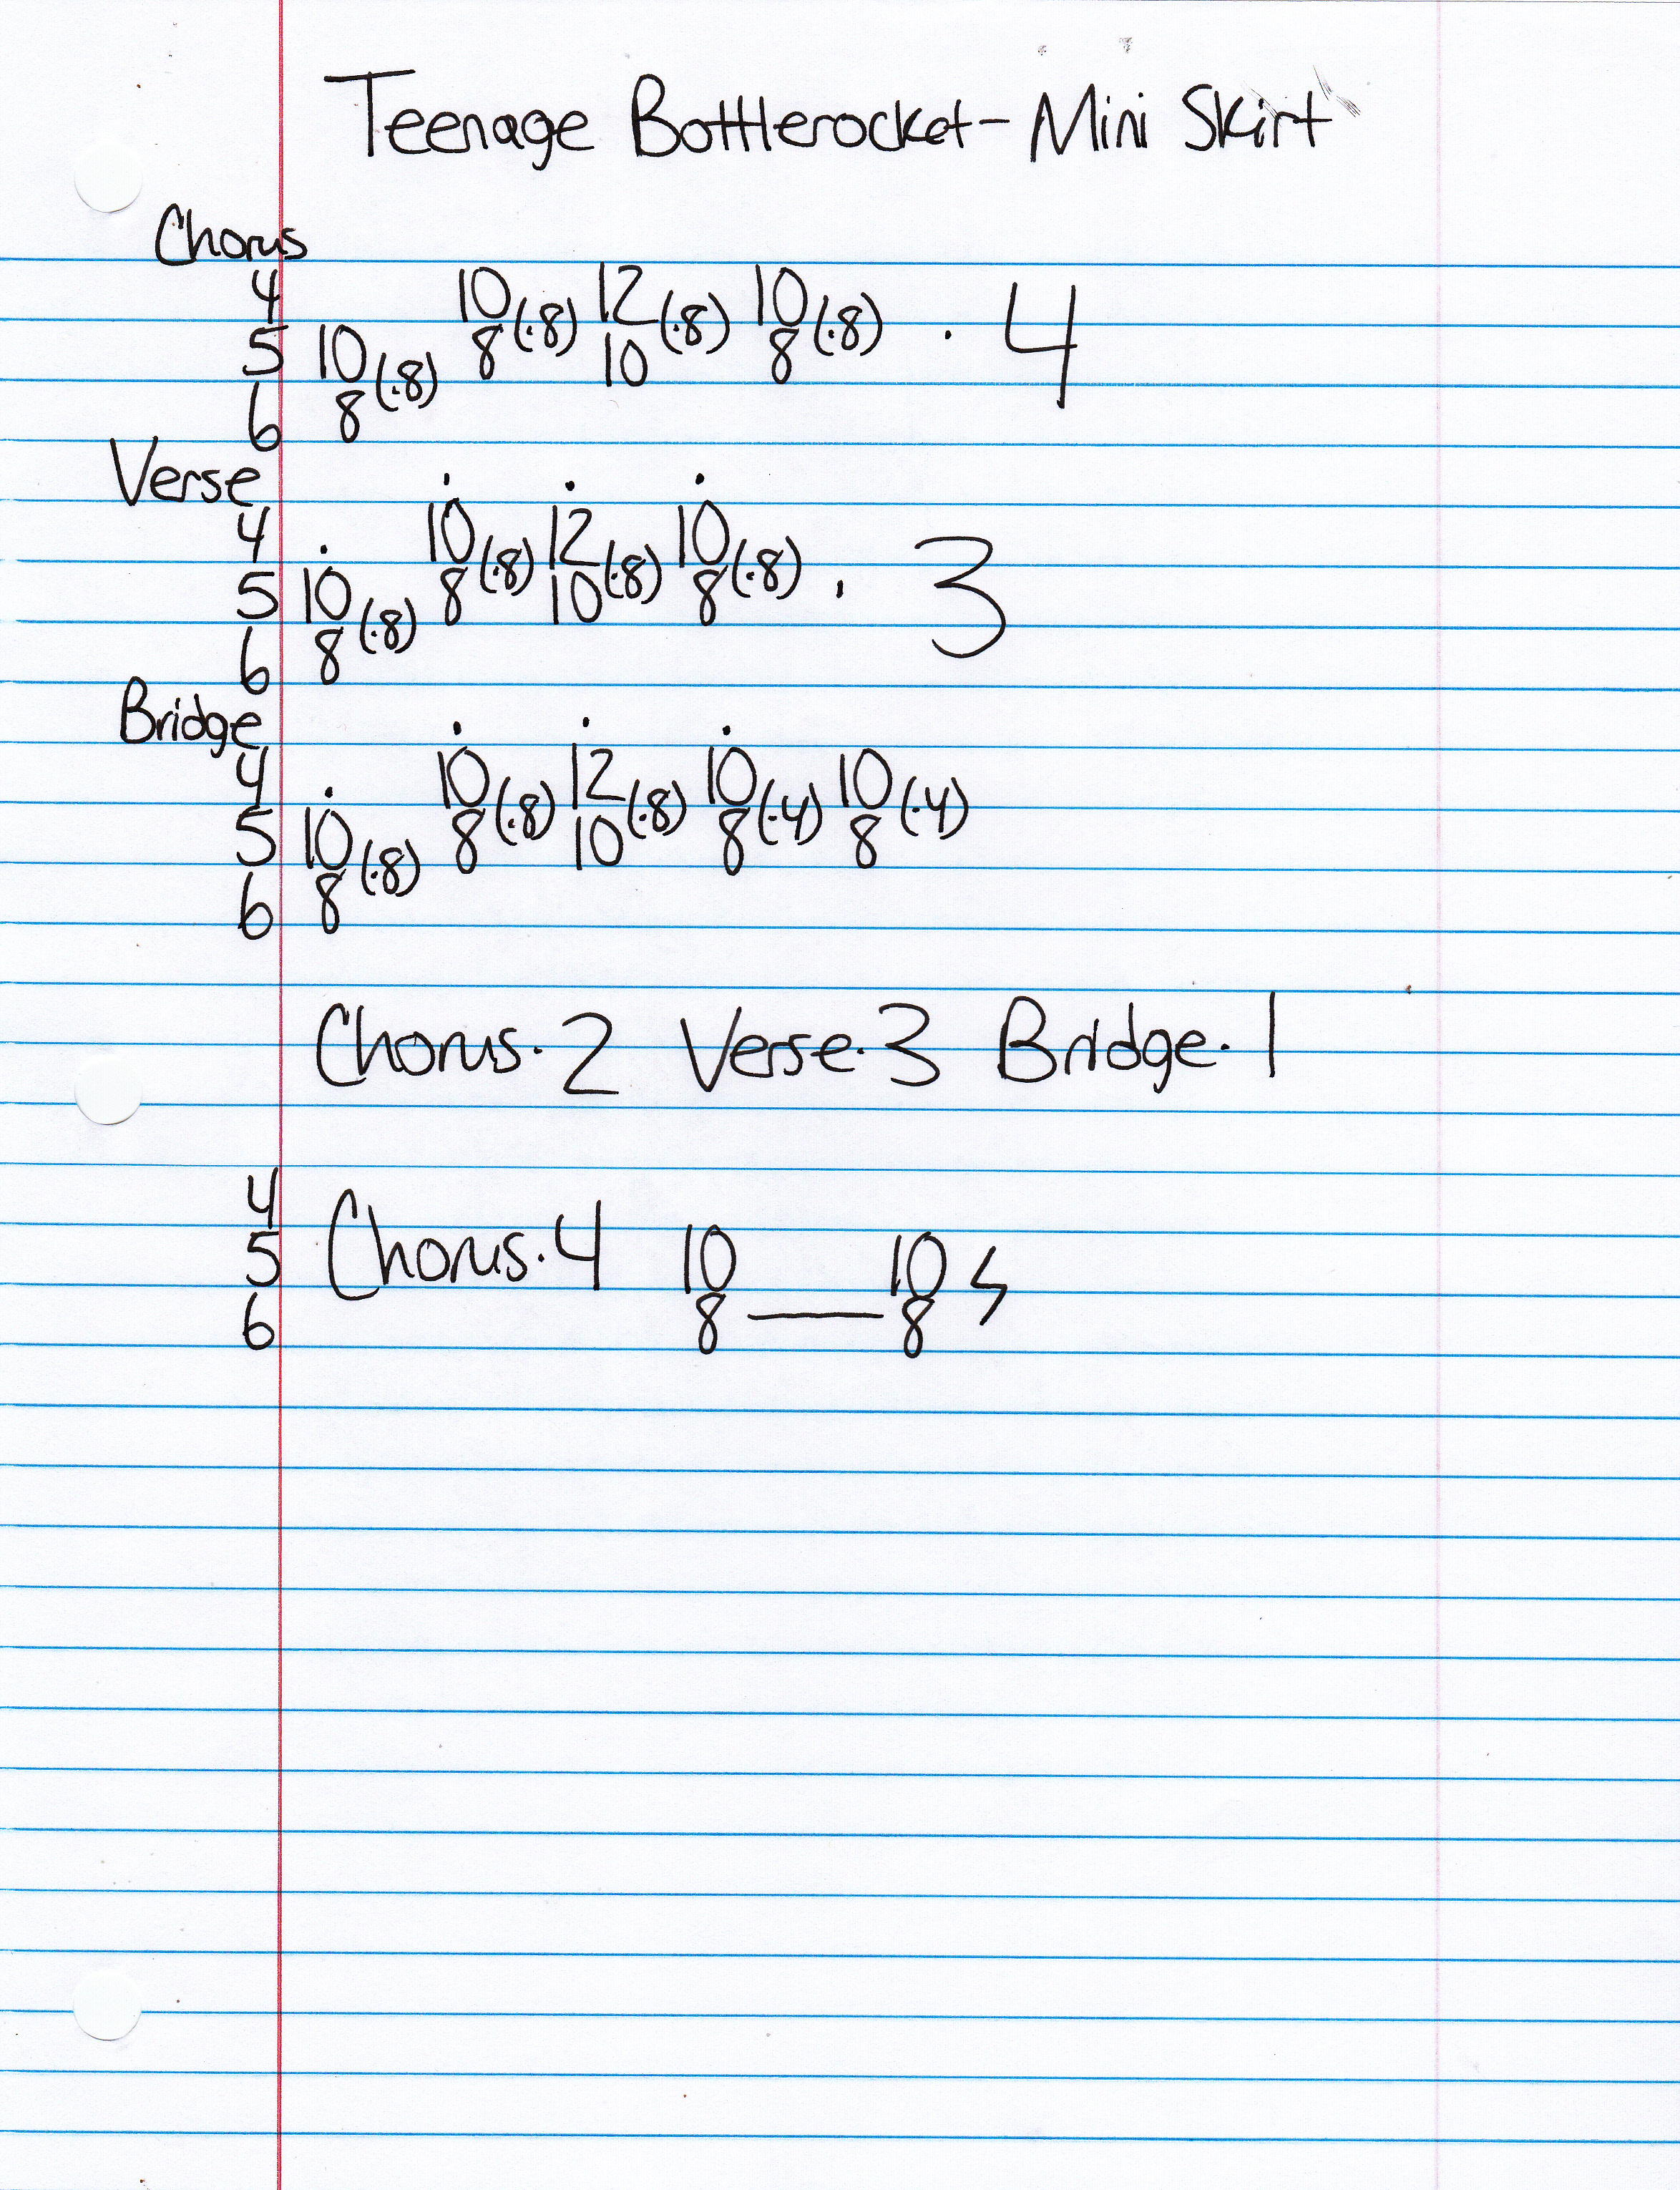 Teenage Bottlerocket - Mini Skirt
Chorus
4 10 12 10
5 10 8(·8) 10(·8) 8(·8) · 4
6 8(·8)
Verse
4 10 12 10
5 10 8(·8) 10(·8) 8(·8) · 3
6 8(·8)
Bridge
4 10 12 10 10
5 10 8(·8) 10(·8) 8(·4) 8(·4)
6 8(·8)
Chorus·2 Verse·3 Bridge·1
4
5 Chorus·4 10 10
6 8 — 8